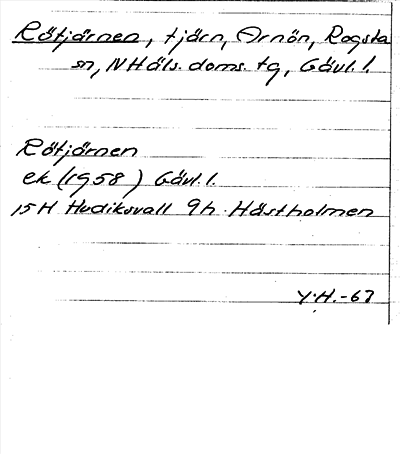 Rötjärnen, tjärn, Arnön, Rogsta
sn, NHäls. doms. tg, Gävl. l.
Rötjärnen
ek (1958) Gävl. l.
15H Hudiksvall 9h Hästholmen
Y.H.-67